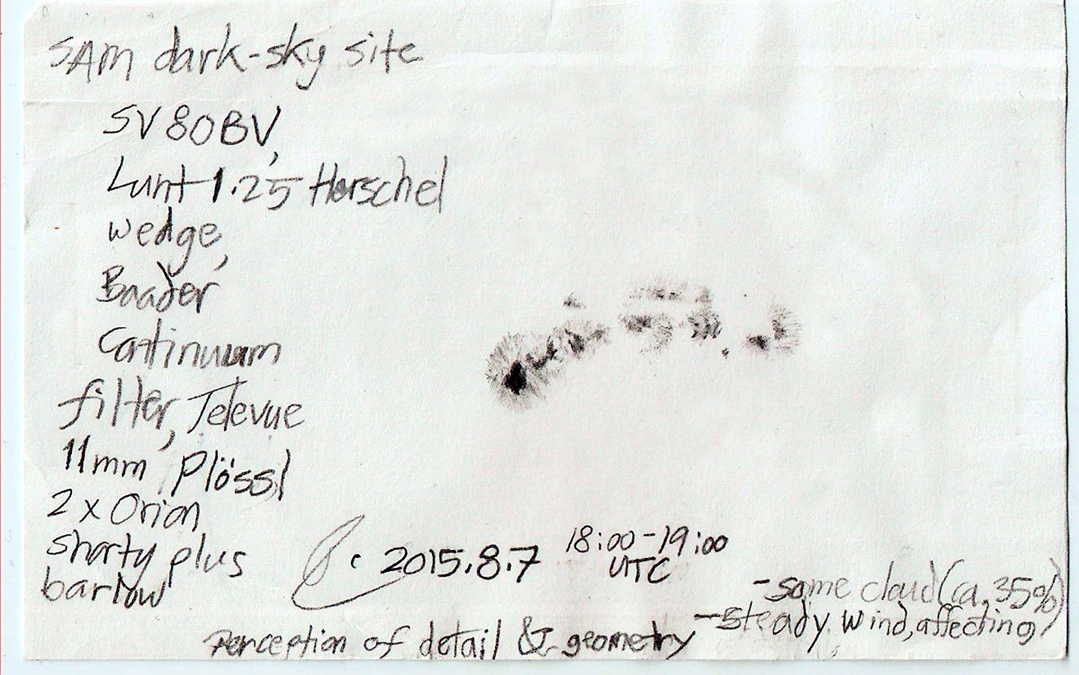 SAM dark-sky site
SV 80BV,
Lunt 1.25 Herschel
wedge,
Baader
Continuum
filter, Televue
11mm Plössl
2x Orion
shorty plus
barlow
2015.8.7 18:00-19:00
UTC
-some cloud (ca. 35%)
-steady wind, affecting
perception of detail & geometry